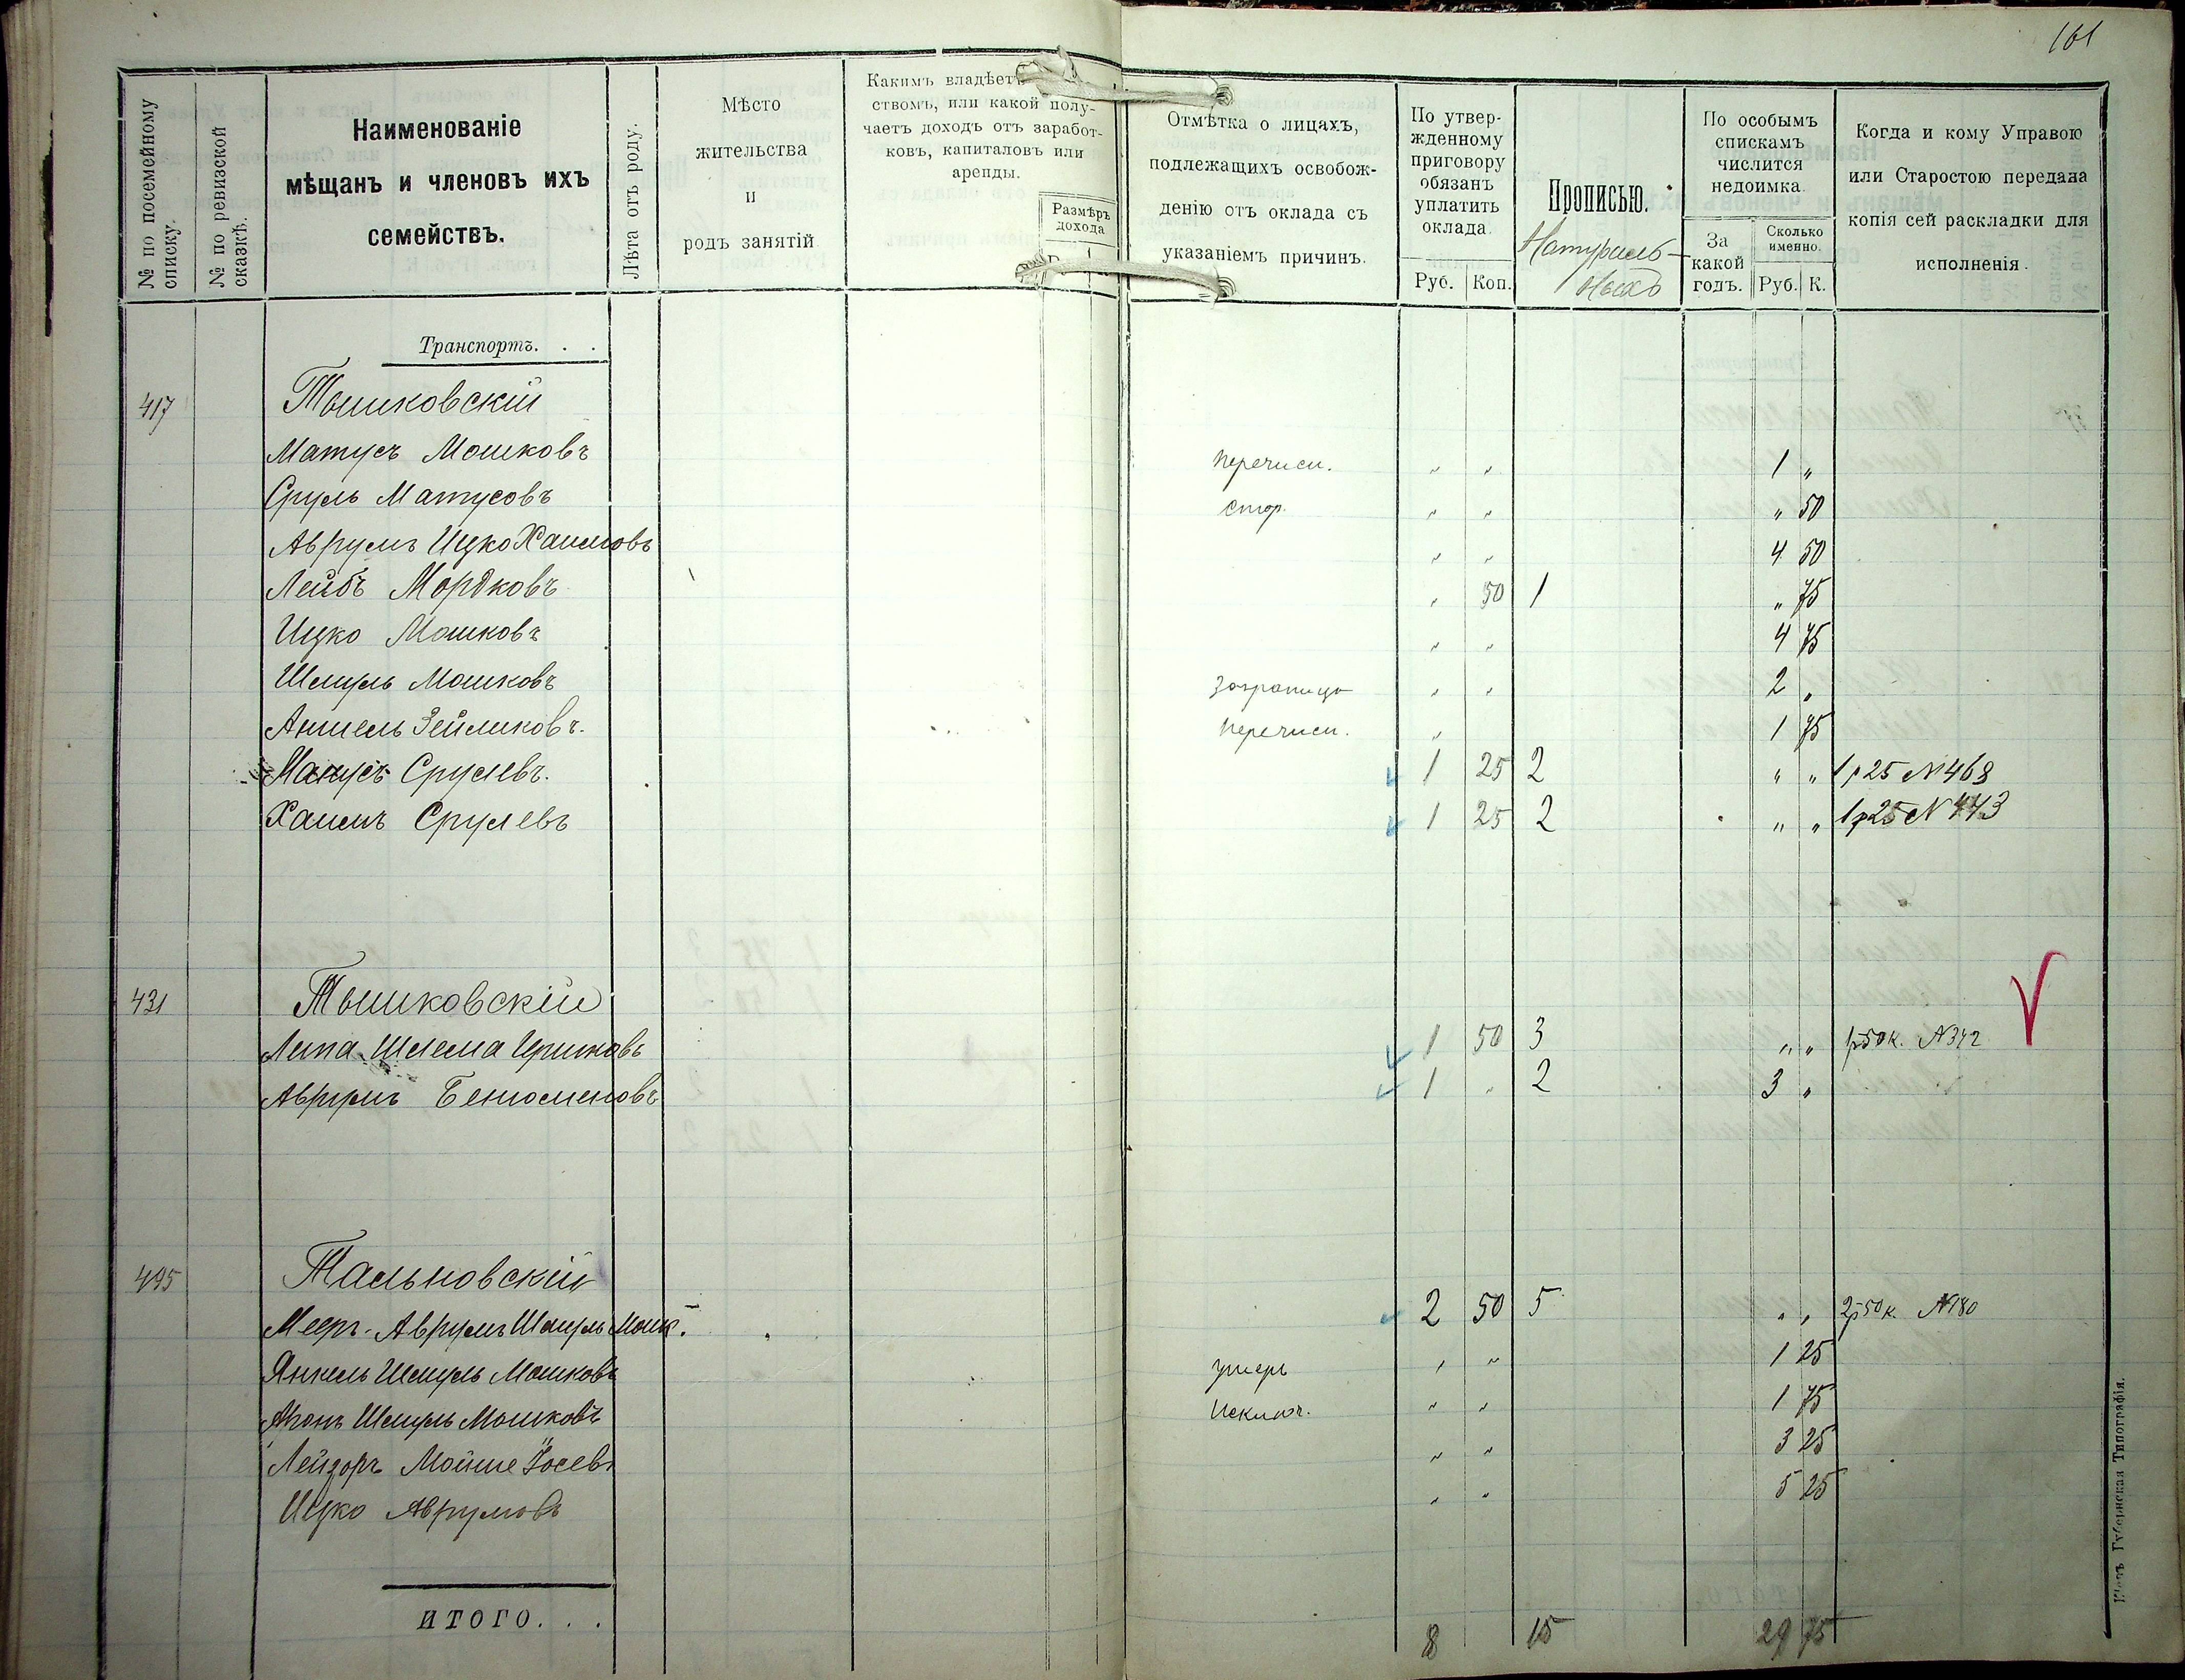 161
№ по посемейному списку.
№ по ревизской сказкѣ.
Наименованіе
мѣщанъ и членовъ ихъ
семействъ.
Лѣта отъ роду.
Мѣсто
жительства
и
родъ занятій
Какимъ владѣетъ
ствомъ, или какой полу-
чаетъ доходъ отъ заработ-
ковъ, капиталовъ или
аренды.
Размѣръ
дохода
Отмѣтка о лицахъ,
подлежащихъ освобож-
денію отъ оклада съ
указаніемъ причинъ.
По утвер-
жденному
приговору
обязанъ
уплатить
оклада
Руб. Коп.
Прописью.
Натураль-
ныхъ
По особымъ
спискамъ
числится
недоимка.
За
какой
годъ.
Сколько
именно.
Руб. К.
Когда и кому Управою
или Старостою передана
копія сей раскладки для
исполненія.
Транспортъ. . .
417 Тышковскій
Матусъ Мошковъ перечисл. " " 1 "
Сруль Матусовъ стор. " " " 50
Аврумъ Ицко Хаимовъ " " 4 50
Лейбъ Мордковъ " 50 1 " 75
Ицко Мошковъ " " 4 75
Шмуль Мошковъ заграницу " " 2 "
Аншель Зейликовъ. перечисл. " 1 75
Манусъ Срулевъ. 1 25 2 " " 1 р 25 № 468
Хаимъ Срулевъ 1 25 2 " " 1 р 25 № 443
431 Тышковскій
Липа Шлема Ершковъ 1 50 3 " " 1р 50 к. № 342
Аврумъ Беньоменовъ 1 " 2 3 "
495 Тальновскій
Мееръ-Аврумъ Шмуль Мошк. 2 50 5 " " 2р 50 к. № 180
Янкель Шмуль Мошковъ умеръ " " 1 25
Аронъ Шмуль Мошковъ Исключ. " " 1 75
Лейзоръ Мойше Іосевъ " " 3 25
Ицко Аврумовъ " " 5 25
ИТОГО. . . 8 15 29 75
Кіевъ Губернская Типографія.